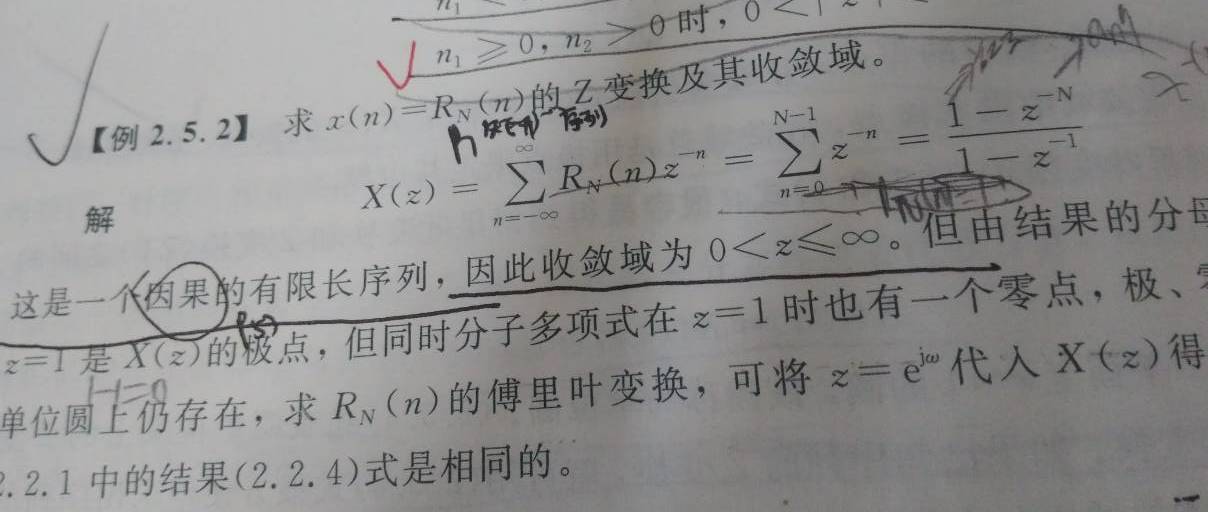 n₁ ≥ 0, n₂ > 0 时, 0 < | z
【例 2.5.2】 求 x(n)=R_N(n)的 Z 变换及其收敛域。
n 序列
解 X(z) = \sum_{n=-∞}^{∞} R_N(n)z^{-n} = \sum_{n=0}^{N-1} z^{-n} = \frac{1-z^{-N}}{1-z^{-1}}
这是一个因果的有限长序列, 因此收敛域为 0<z≤∞。但由结果的分母
z=1 是 X(z)的极点, 但同时分子多项式在 z=1 时也有一个零点, 极、零
单位圆上仍存在, 求 R_N(n)的傅里叶变换, 可将 z=e^{jω}代入 X(z)得
2.2.1 中的结果(2.2.4)式是相同的。